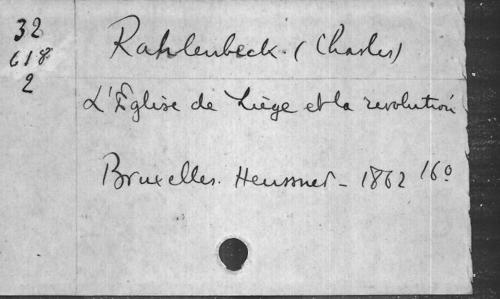 32
618
2
Rahlenbeck. (Charles)
L'Église de Liège et la revolution
Bruxelles. Heussner - 1862 16º